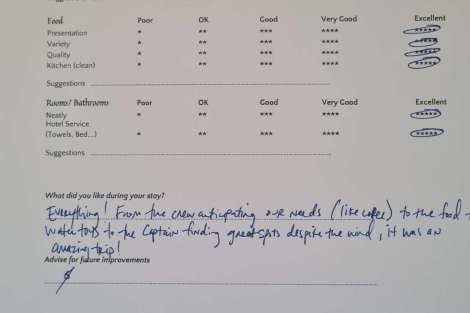 Food Poor OK Good Very Good Excellent
Presentation * ** *** **** *****
Variety * ** *** **** *****
Quality * ** *** **** *****
Kitchen (clean) * ** *** **** *****
Suggestions
Rooms / Bathrooms Poor OK Good Very Good Excellent
Neatly * ** *** **** *****
Hotel Service
(Towels, Bed...) * ** *** **** *****
Suggestions
What did you like during your stay?
Everything! From the crew anticipating our needs (like coffee) to the food +
water toys to the Captain finding great spots despite the wind, it was an
amazing trip!
Advise for future improvements